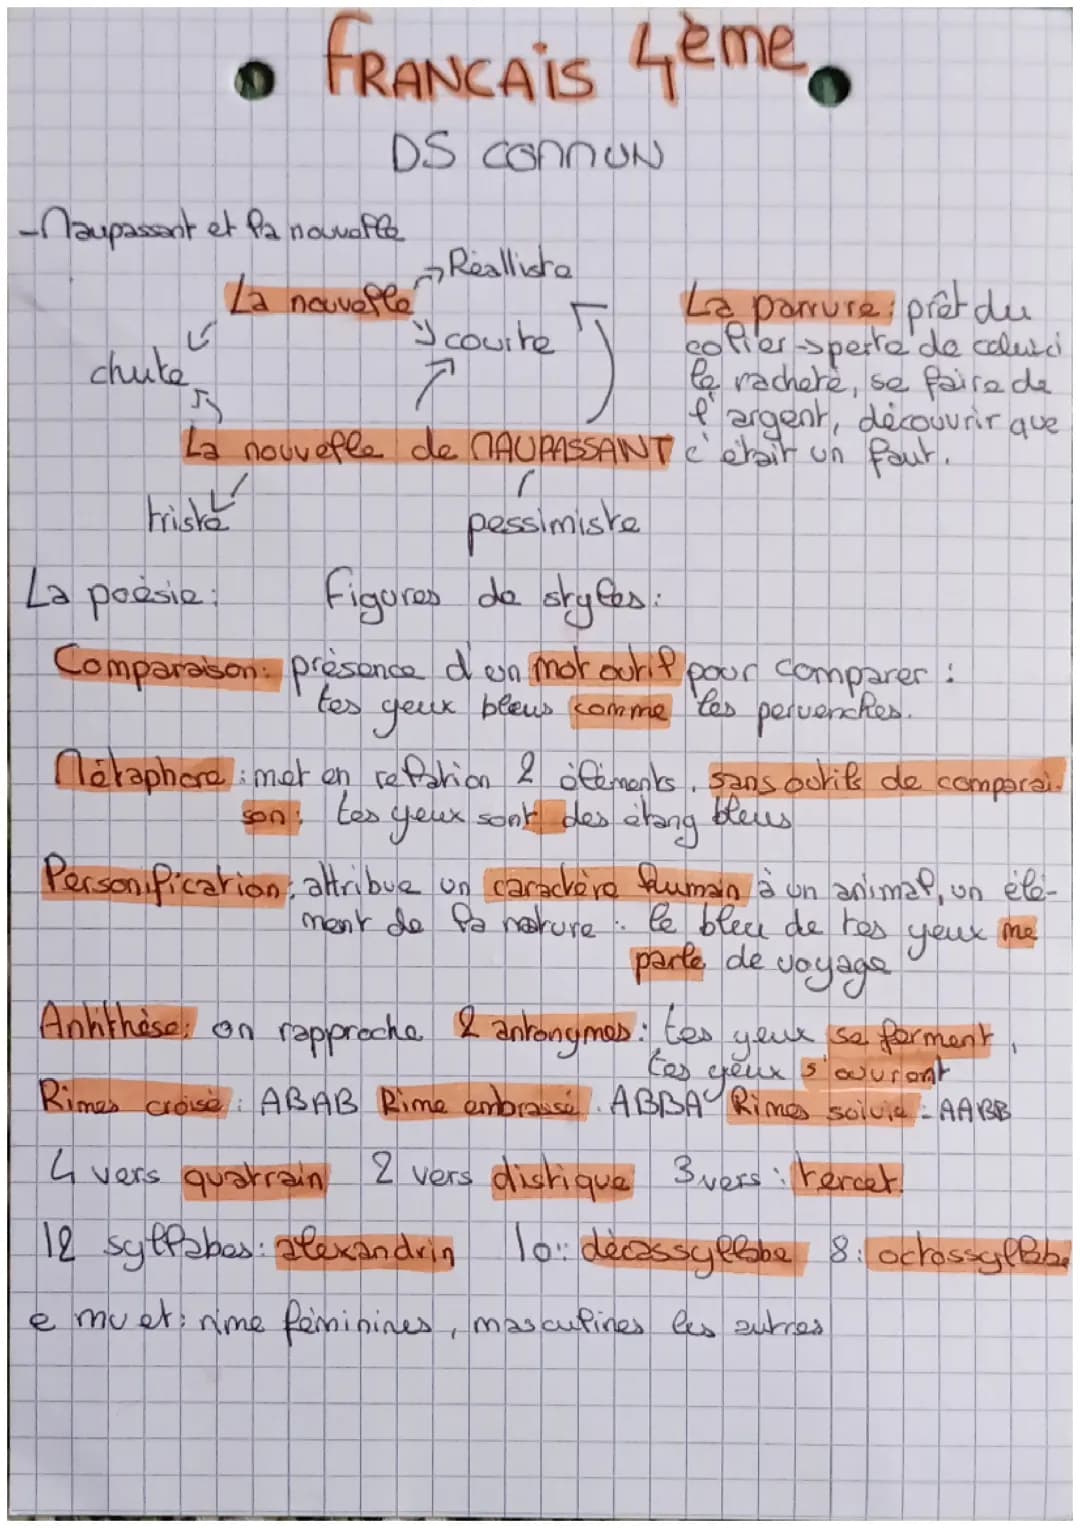 FRANCAIS 4ème
DS COMMUN
- Maupassant et la nouvelle
Réalliste
La nouvelle
courte
chute
La nouvelle de MAUPASSANT
triste
pessimiste
La parrure : prêt du
collier → perte de celui ci
le racheté, se faire de
l'argent, découvrir que
c'était un faut.
La poésie : Figures de styles :
Comparaison : présence d'un mot outil pour comparer :
tes yeux bleus comme les pervenches.
Métaphore : met en relation 2 éléments, sans outils de comparai-
son : tes yeux sont des étang bleus
Personification : attribue un caractère humain à un animal, un élé-
ment de la nature : le bleu de tes yeux me
parle de voyage
Antithèse : on rapproche 2 antonymes : tes yeux se ferment,
tes yeux s'ouvront
Rimes croisé : ABAB Rime embrassé : ABBA Rimes suivie : AABB
4 vers quatrain 2 vers distique 3 vers : tercet
12 syllabes : alexandrin 10 : décassyllabe 8 : octossyllabe
e muet : rime féminines, masculines les autres